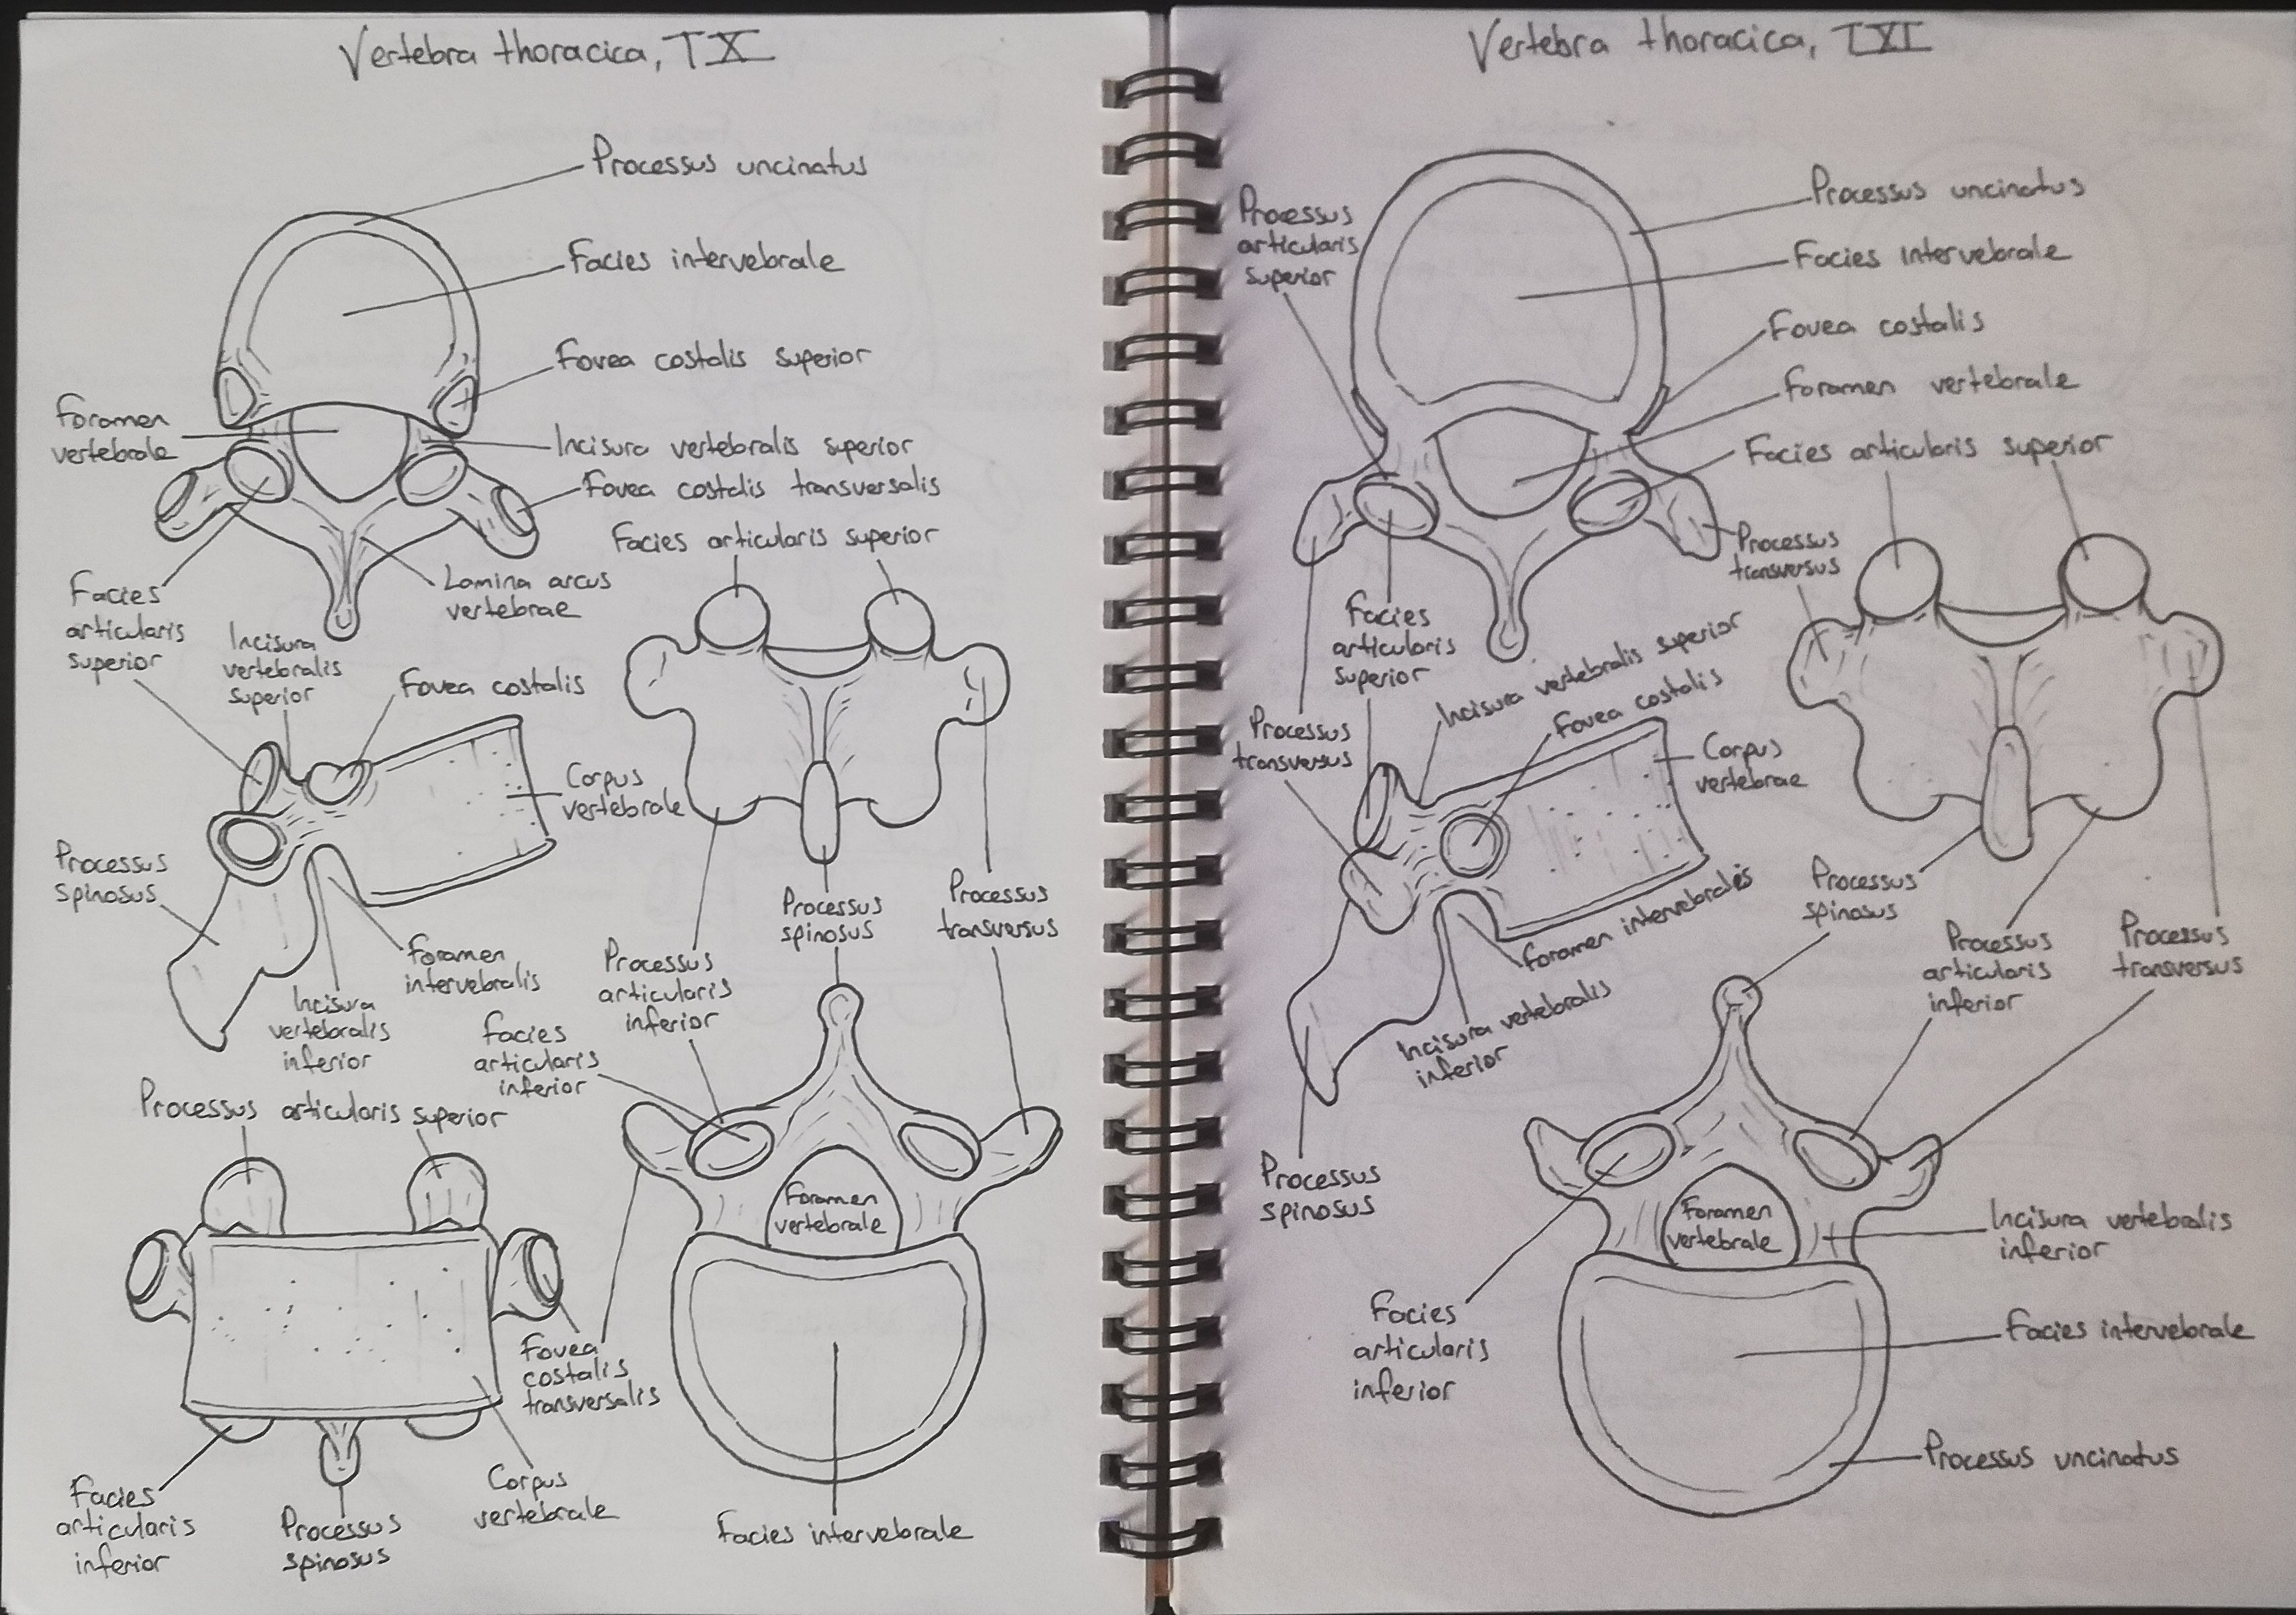 Vertebra thoracica, TX
Processus uncinatus
Facies intervebrale
Fovea costalis superior
Foramen
vertebrale
Incisura vertebralis superior
Fovea costalis transversalis
Facies articularis superior
Lamina arcus
vertebrae
Facies
articularis
superior
Incisura
vertebralis
superior
Fovea costalis
Corpus
vertebrale
Processus
spinosus
Foramen
intervebralis
Incisura
vertebralis
inferior
Processus
spinosus
Processus
transversus
Processus
articularis
inferior
Facies
articularis
inferior
Processus articularis superior
Foramen
vertebrale
Fovea
costalis
transversalis
Facies
articularis
inferior
Processus
spinosus
Corpus
vertebrale
Facies intervebrale
Vertebra thoracica, TXI
Processus
articularis
superior
Processus uncinatus
Facies intervebrale
Fovea costalis
Foramen vertebrale
Facies articularis superior
Processus
transversus
Facies
articularis
superior
Incisura vertebralis superior
Fovea costalis
Processus
transversus
Corpus
vertebrae
Foramen intervebralis
Incisura vertebralis
inferior
Processus
spinosus
Processus
spinosus
Processus
articularis
inferior
Processus
transversus
Foramen
vertebrale
Incisura vertebralis
inferior
Facies
articularis
inferior
Facies intervebrale
Processus uncinatus